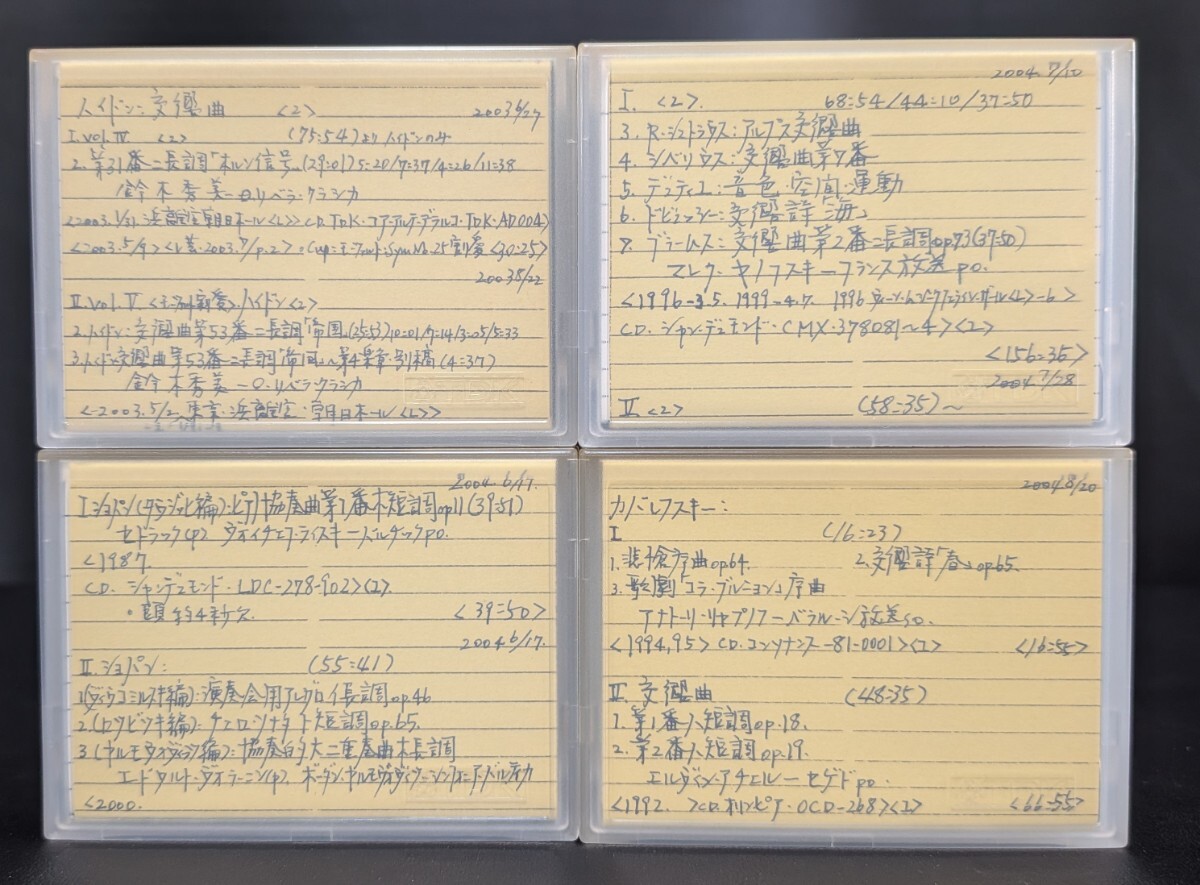 ハイドン：交響曲 <2> 2003 6/27
I. Vol. IV <2> (75=54)より ハイドンのみ
2. 第31番ニ長調「ホルン信号」(29=01) 5=20/7=37/4=26/11=38
鈴木秀美-O.リベラ・クラシカ
<2003.1/31. 浜離宮朝日ホール<L>> <CD. TDK・コア・アルテ・デラルコ・TDK・AD004>
<2003.5/9> <レ芸.2003.7/p.2> Sym No.25割愛 <30=25>
2003 8/22
II. Vol. V ハイドン <2>
2. ハイドン：交響曲第53番ニ長調「帝国」(25=53) 10=01/7=14/3=05/5=33
3. ハイドン：交響曲第53番ニ長調「帝国」〜第4楽章別稿 (4=37)
鈴木秀美-O.リベラ・クラシカ
<-2003.5/2. 東京・浜離宮・朝日ホール<L>>
TDK
2004. 7/10
I. <2>. 68=54/44=10/37=50
3. R.シュトラウス：アルプス交響曲
4. シベリウス：交響曲第7番
5. デュティユ：音色・空間・運動
6. ドビュッシー：交響詩「海」
7. ブラームス：交響曲第2番ニ長調op.73 (37=50)
マレク・ヤノフスキーフランス放送po.
<1996-3.5. 1999-4.7. 1996 <L>-6>
CD. シャン・デュモンド・CMX-378081~4> <2>
<156=36>
2004 7/28
II <2> (58=35)~
2004. 6/17.
I ショパン(タウジッヒ編)：ピアノ協奏曲第1番ホ短調op11 (39=51)
セドラック(p) ヴォイチェフ・ラ
<1987.
CD. シャン・デュモンド・LDC-278-902> <2>.
・頭約4秒欠 <39=50>
2004 6/17.
II. ショパン： (55=41)
1. 演奏会用アレグロイ長調op.46
2. チェロ・ソナタト短調op.65.
3. 協奏的大二重奏曲ホ長調
<2000.
2004 8/20
カバレフスキー：
I (16=23)
1. 悲愴序曲op64. 2. 交響詩「春」op65.
3. 歌劇「コラ・ブルニョン」序曲
アナトーリ・ラプノフーベラルーシ放送so.
<1994,95> CD. コンソナンスー81-0001> <2> <16=55>
II. 交響曲 (48=35)
1. 第1番ハ短調op.18.
2. 第2番ハ短調op.19.
エルヴィン・アチェルーセゲドpo.
<1992. >CD. オリンピア・OCD-268> <2> <66=55>